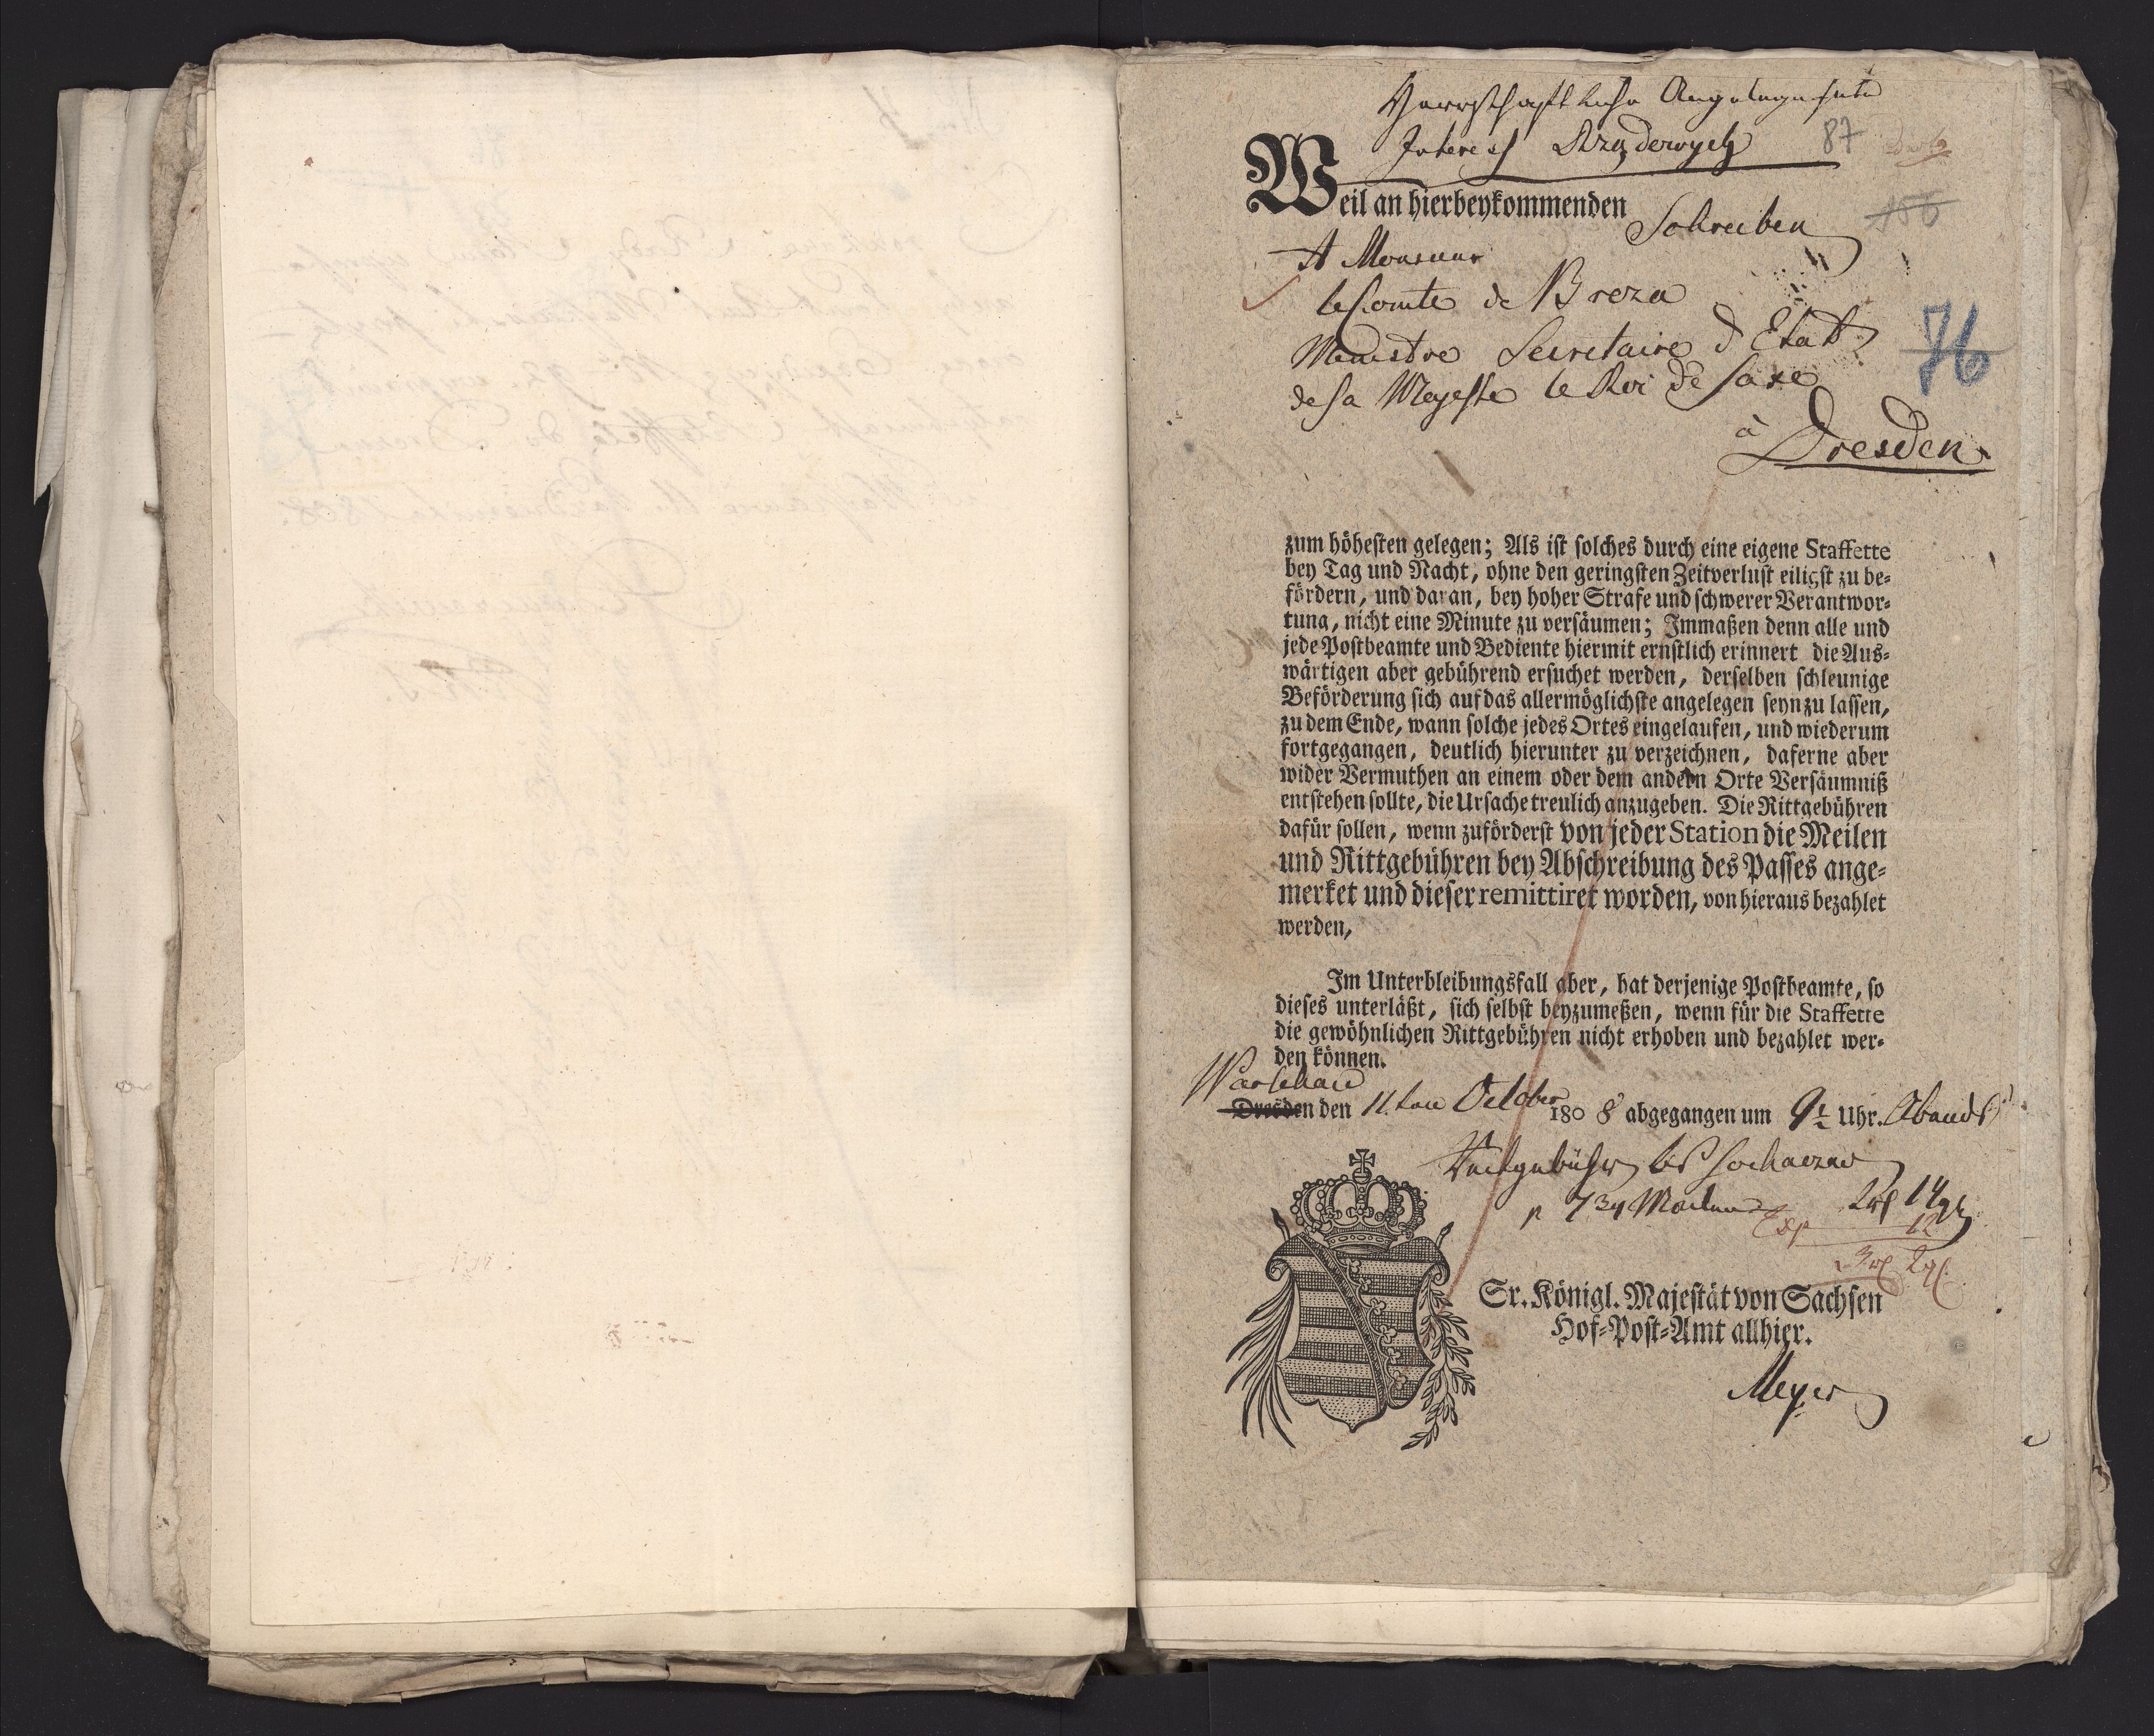 Herrschaftliche Angelegenheit
Interess Rządowych 87
Weil an hierbeykommenden
Schreiben
156
A Monsieur
le Comte de Breza
Ministre Secretaire d'Etat
76
de Sa Majeste le Roi de Saxe
à
Dresden
zum höhesten gelegen; Als ist solches durch eine eigene Staffette
bey Tag und Nacht, ohne den geringsten Zeitverlust eiligst zu be-
fördern, und daran, bey hoher Strafe und schwerer Verantwor-
tung, nicht eine Minute zu versäumen; Immaßen denn alle und
jede Postbeamte und Bediente hiermit ernstlich erinnert die Aus-
wärtigen aber gebührend ersuchet werden, derselben schleunige
Beförderung sich auf das allermöglichste angelegen seyn zu lassen,
zu dem Ende, wann solche jedes Ortes eingelaufen, und wiederum
fortgegangen, deutlich hierunter zu verzeichnen, daferne aber
wider Vermuthen an einem oder dem andern Orte Versäumniß
entstehen sollte, die Ursache treulich anzugeben. Die Rittgebühren
dafür sollen, wenn zuförderst von jeder Station die Meilen
und Rittgebühren bey Abschreibung des Passes ange-
merket und dieser remittiret worden, von hieraus bezahlet
werden,
Im Unterbleibungsfall aber, hat derjenige Postbeamte, so
dieses unterläßt, sich selbst beyzumeßen, wenn für die Staffette
die gewöhnlichen Rittgebühren nicht erhoben und bezahlet wer-
den können.
Warschau
Dresden den 11. ten October 180 8 abgegangen um 9½ Uhr. Abends
bis Sochaczew
Meilen 2 rf 14 gr
Exp 12
3 rf 2 gr
Sr. Königl. Majestät von Sachsen
Hof-Post-Amt allhier.
Meyer